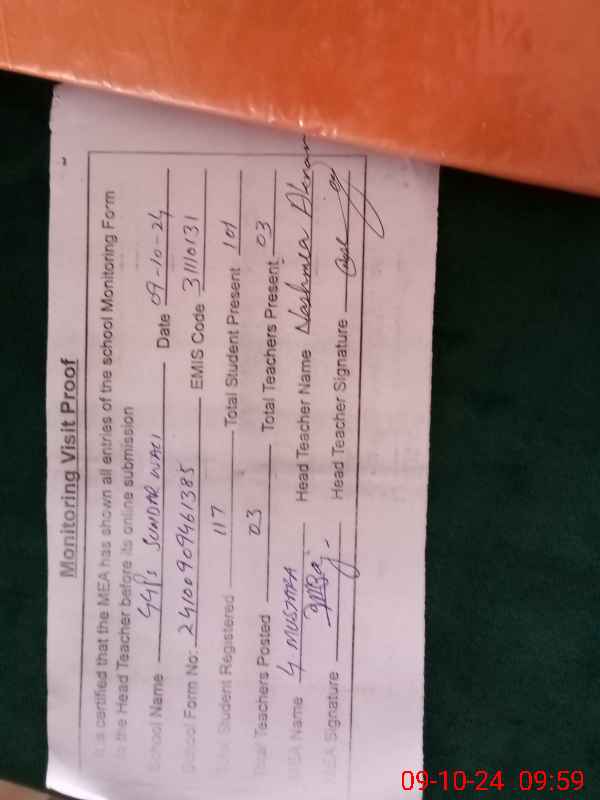 Monitoring Visit Proof
It is certified that the MEA has shown all entries of the school Monitoring Form
to the Head Teacher before its online submission
School Name GGPS SUNDAR WALI Date 09-10-24
School Form No: 24100909461385 EMIS Code 31110131
Total Student Registered 117 Total Student Present 101
Total Teachers Posted 03 Total Teachers Present 03
MEA Name G. MUSTAFA Head Teacher Name Nashmea Akram
MEA Signature Head Teacher Signature
09-10-24 09:59